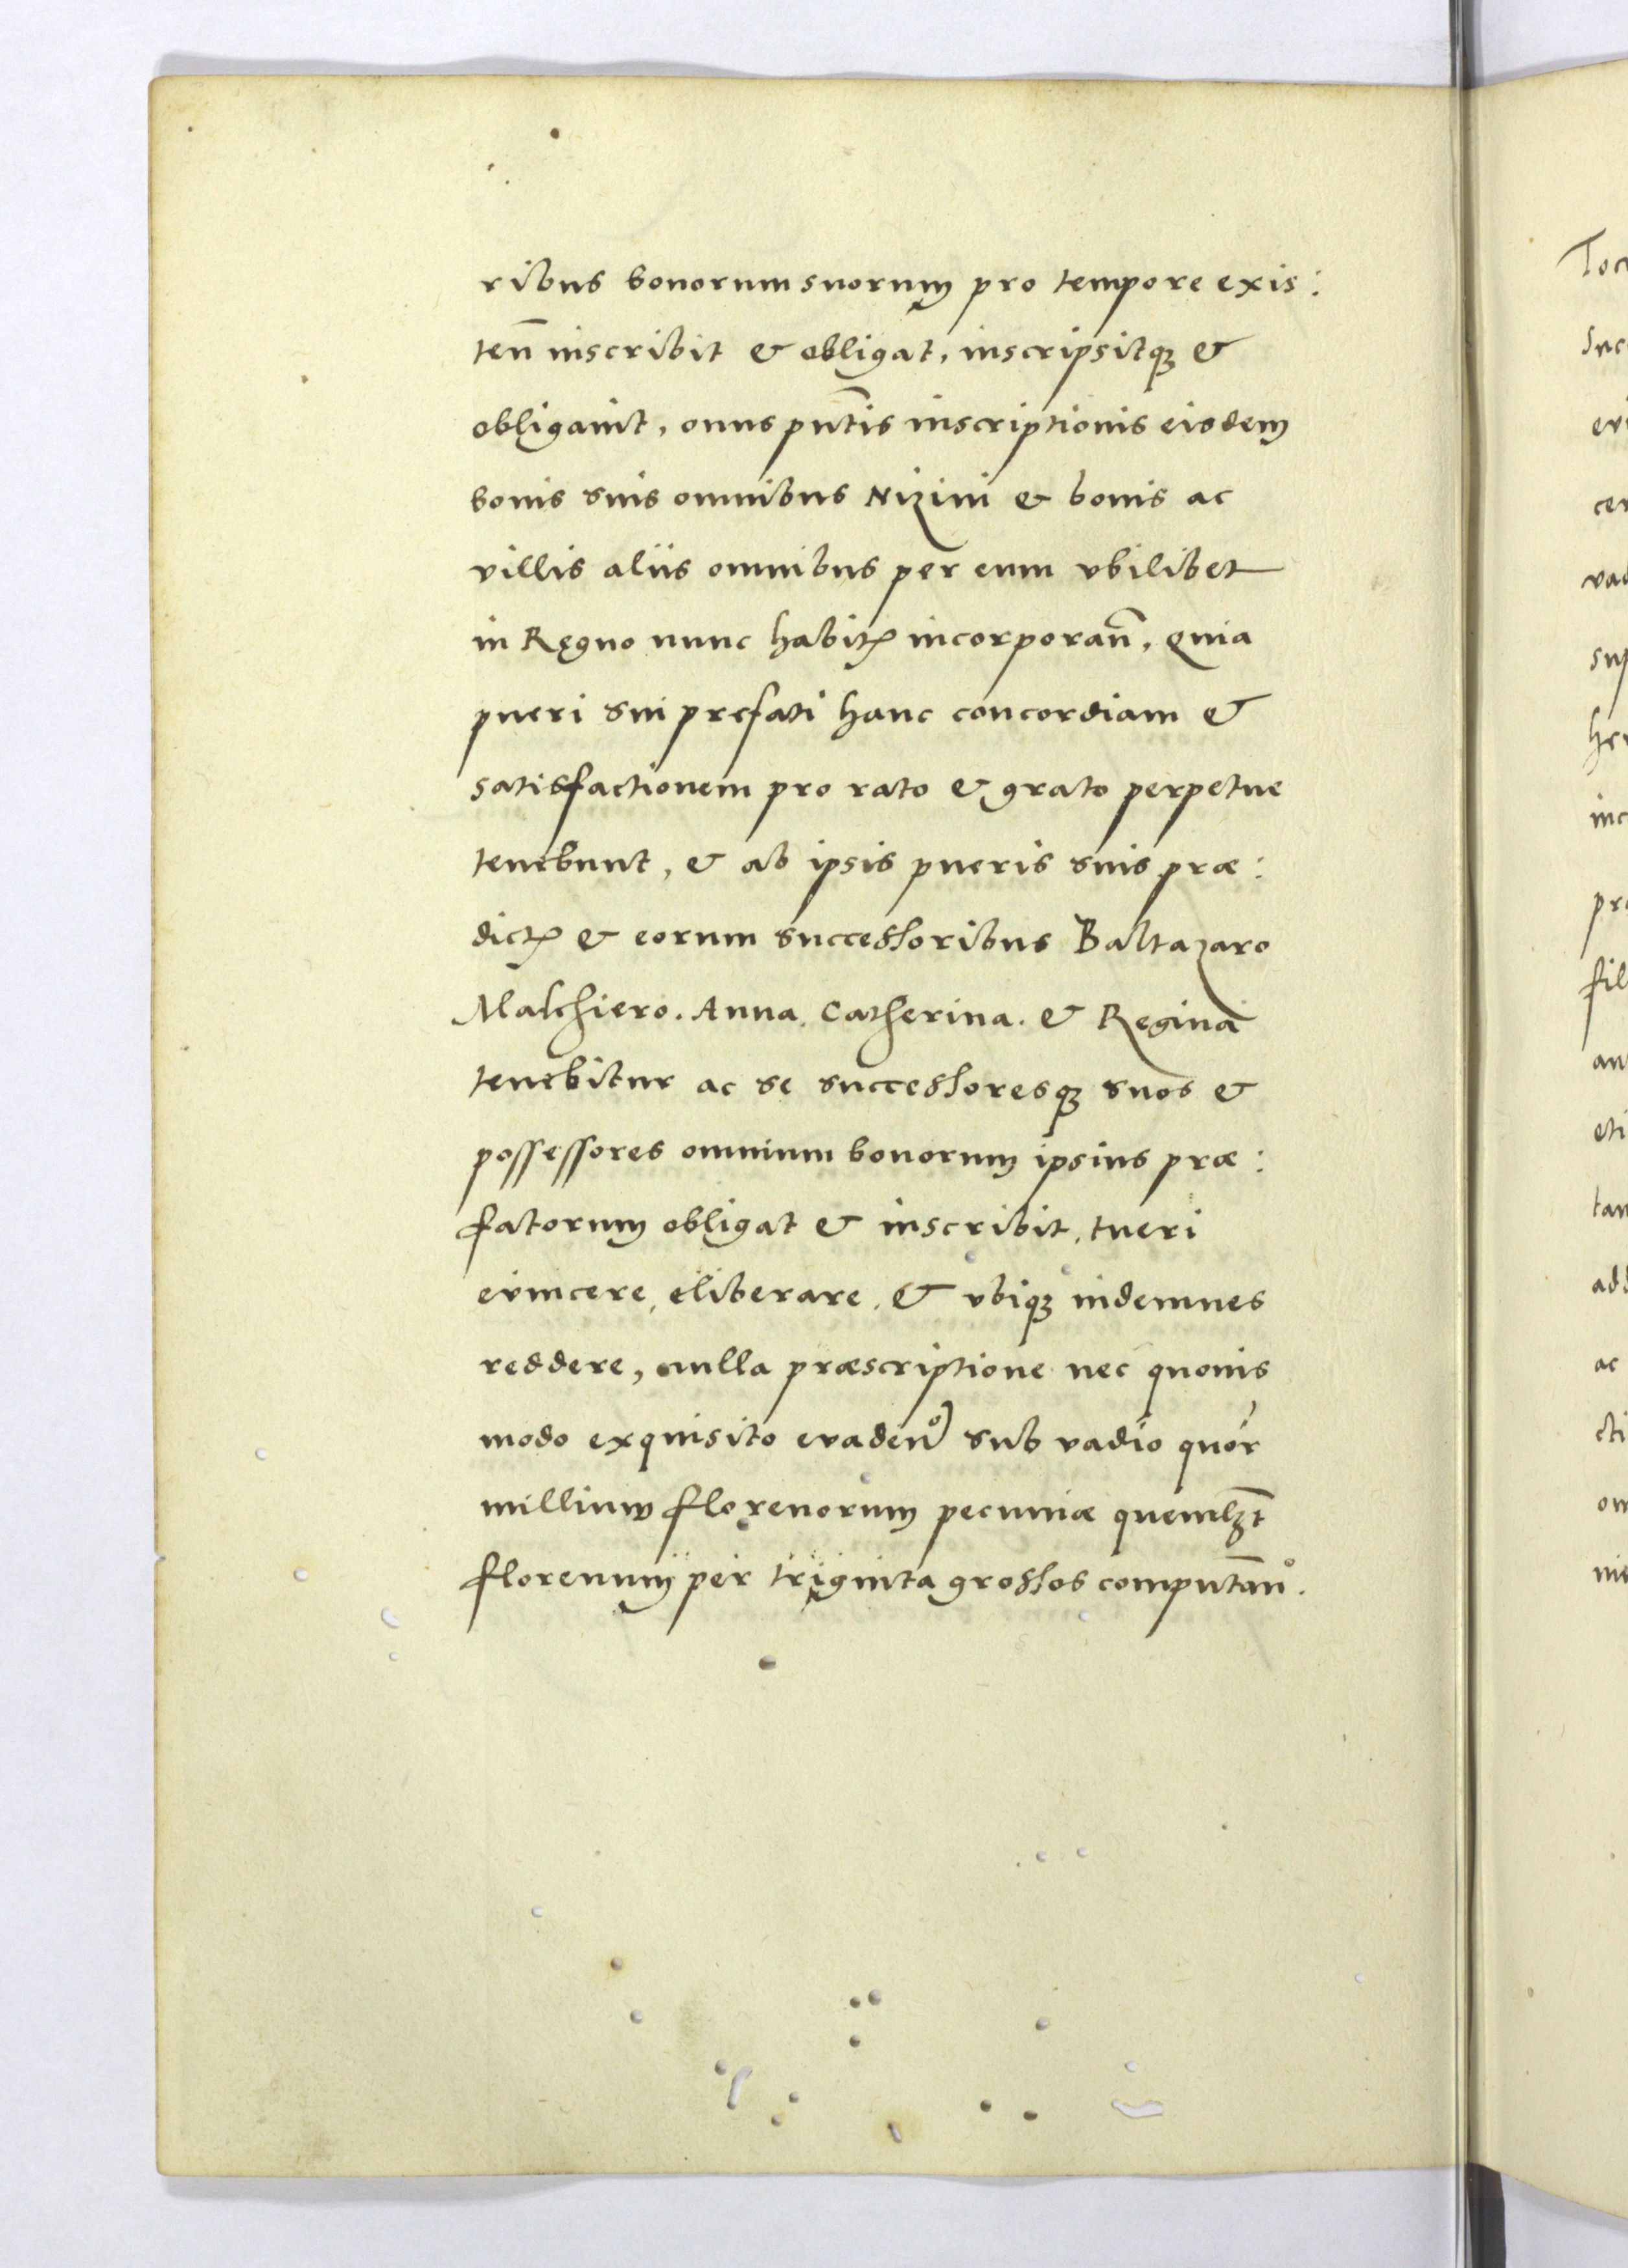 ribus bonorum suorum pro tempore exis:
teñ inscribit & obligat, inscripsitqꝫ &
obligauit, onus pñtis inscriptionis eisdem
bonis suis omnibus Nizini & bonis ac
villis aliis omnibus per eum vbilibet
in Regno nunc habitꝭ incorporañ, Quia
pueri sui prefati hanc concordiam &
satisfactionem pro rato & grato perpetue
tenebunt, & ab ipsis pueris suis præ:
dictꝭ & eorum successoribus Baltazaro
Malchiero. Anna. Catherina. & Regina
tenebitur ac se successoresqꝫ suos &
possessores omnium bonorum ipsius præ:
fatorum obligat & inscribit, tueri
euincere, eliberare, & vbiqꝫ indemnes
reddere, nulla præscriptione nec quouis
modo exquisito euadenͦ) sub vadio quór
millium florenorum pecuniæ quemlꝫt
florenum per triginta grossos computanͦ.
Suc
vad
sup
her
inc
fil
eti
tan
add
ac
cti